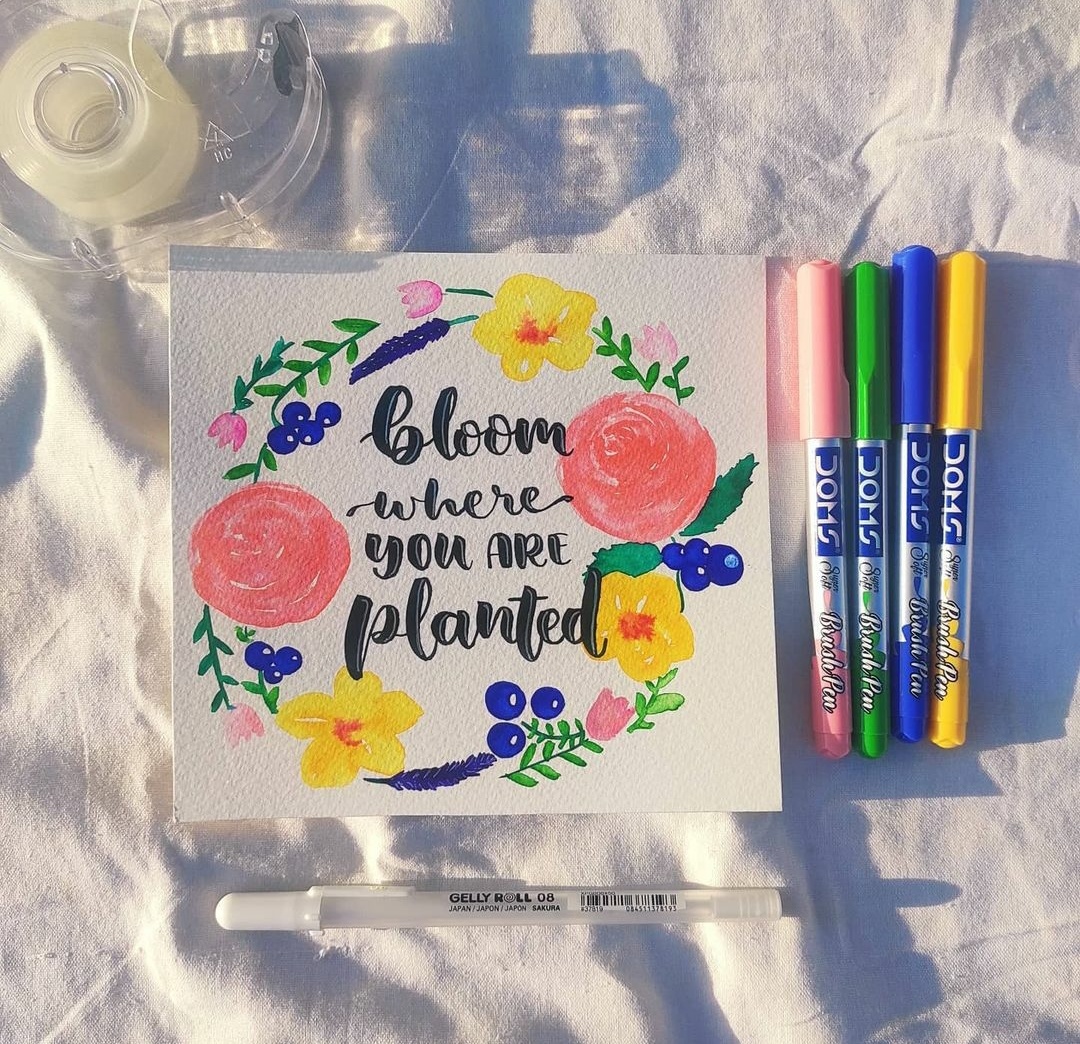 HC
bloom
where
you ARE
planted
DOMS Super Soft Brush Pen
DOMS Super Soft Brush Pen
DOMS Super Soft Brush Pen
DOMS Super Soft Brush Pen
GELLY ROLL 08
JAPAN / JAPON / JAPÓN SAKURA
#37819 084511378193